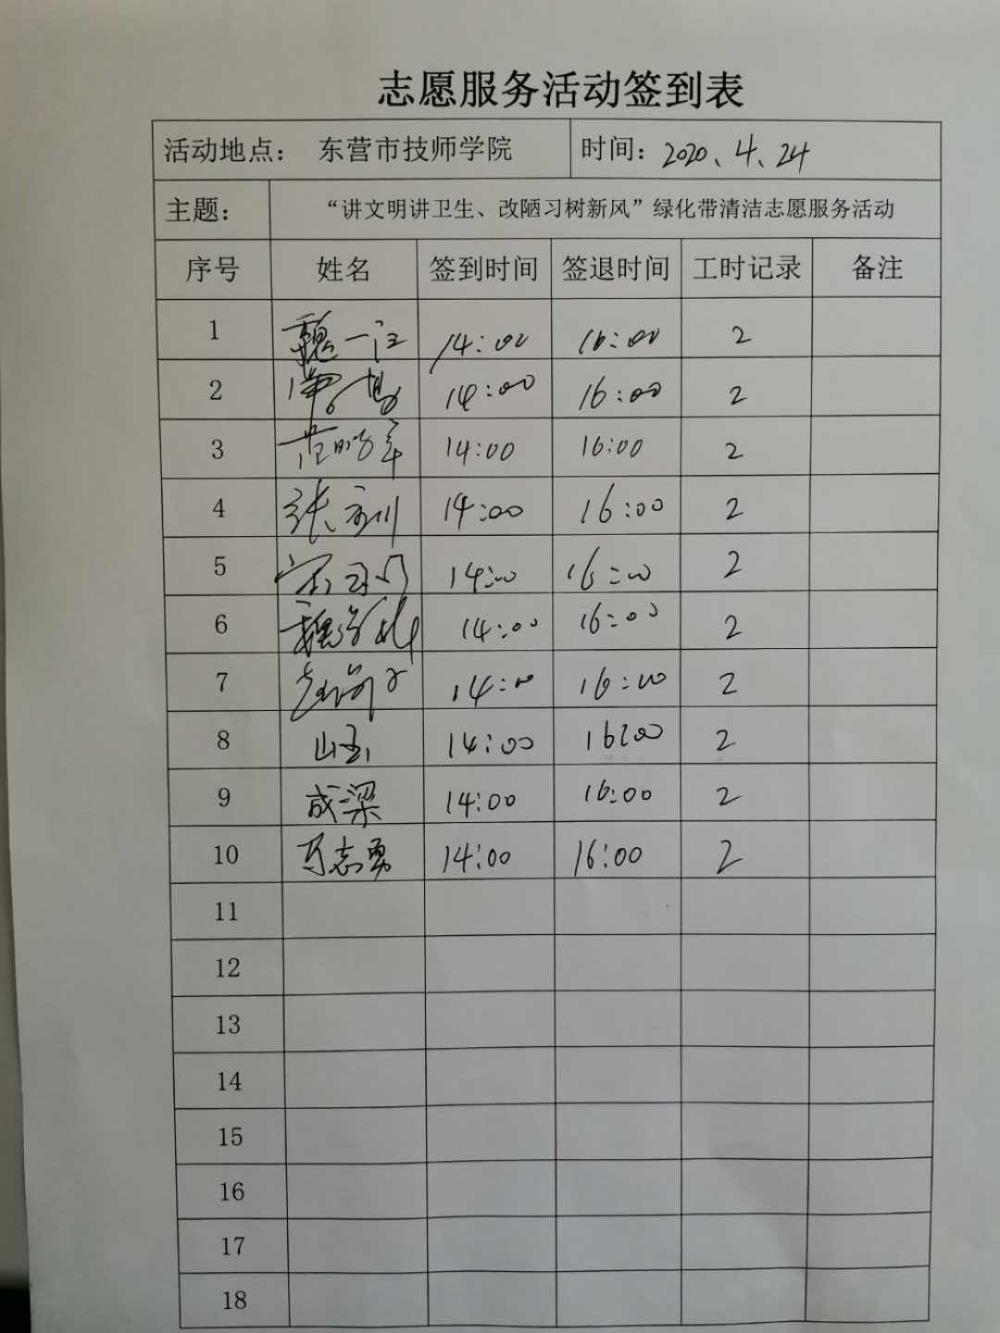 志愿服务活动签到表
活动地点： 东营市技师学院 时间：2020、4、24
主题： “讲文明讲卫生、改陋习树新风”绿化带清洁志愿服务活动
序号 姓名 签到时间 签退时间 工时记录 备注
1 魏一江 14:00 16:00 2
2 14:00 16:00 2
3 14:00 16:00 2
4 14:00 16:00 2
5 14:00 16:00 2
6 14:00 16:00 2
7 14:00 16:00 2
8 14:00 16:00 2
9 成梁 14:00 16:00 2
10 14:00 16:00 2
11
12
13
14
15
16
17
18